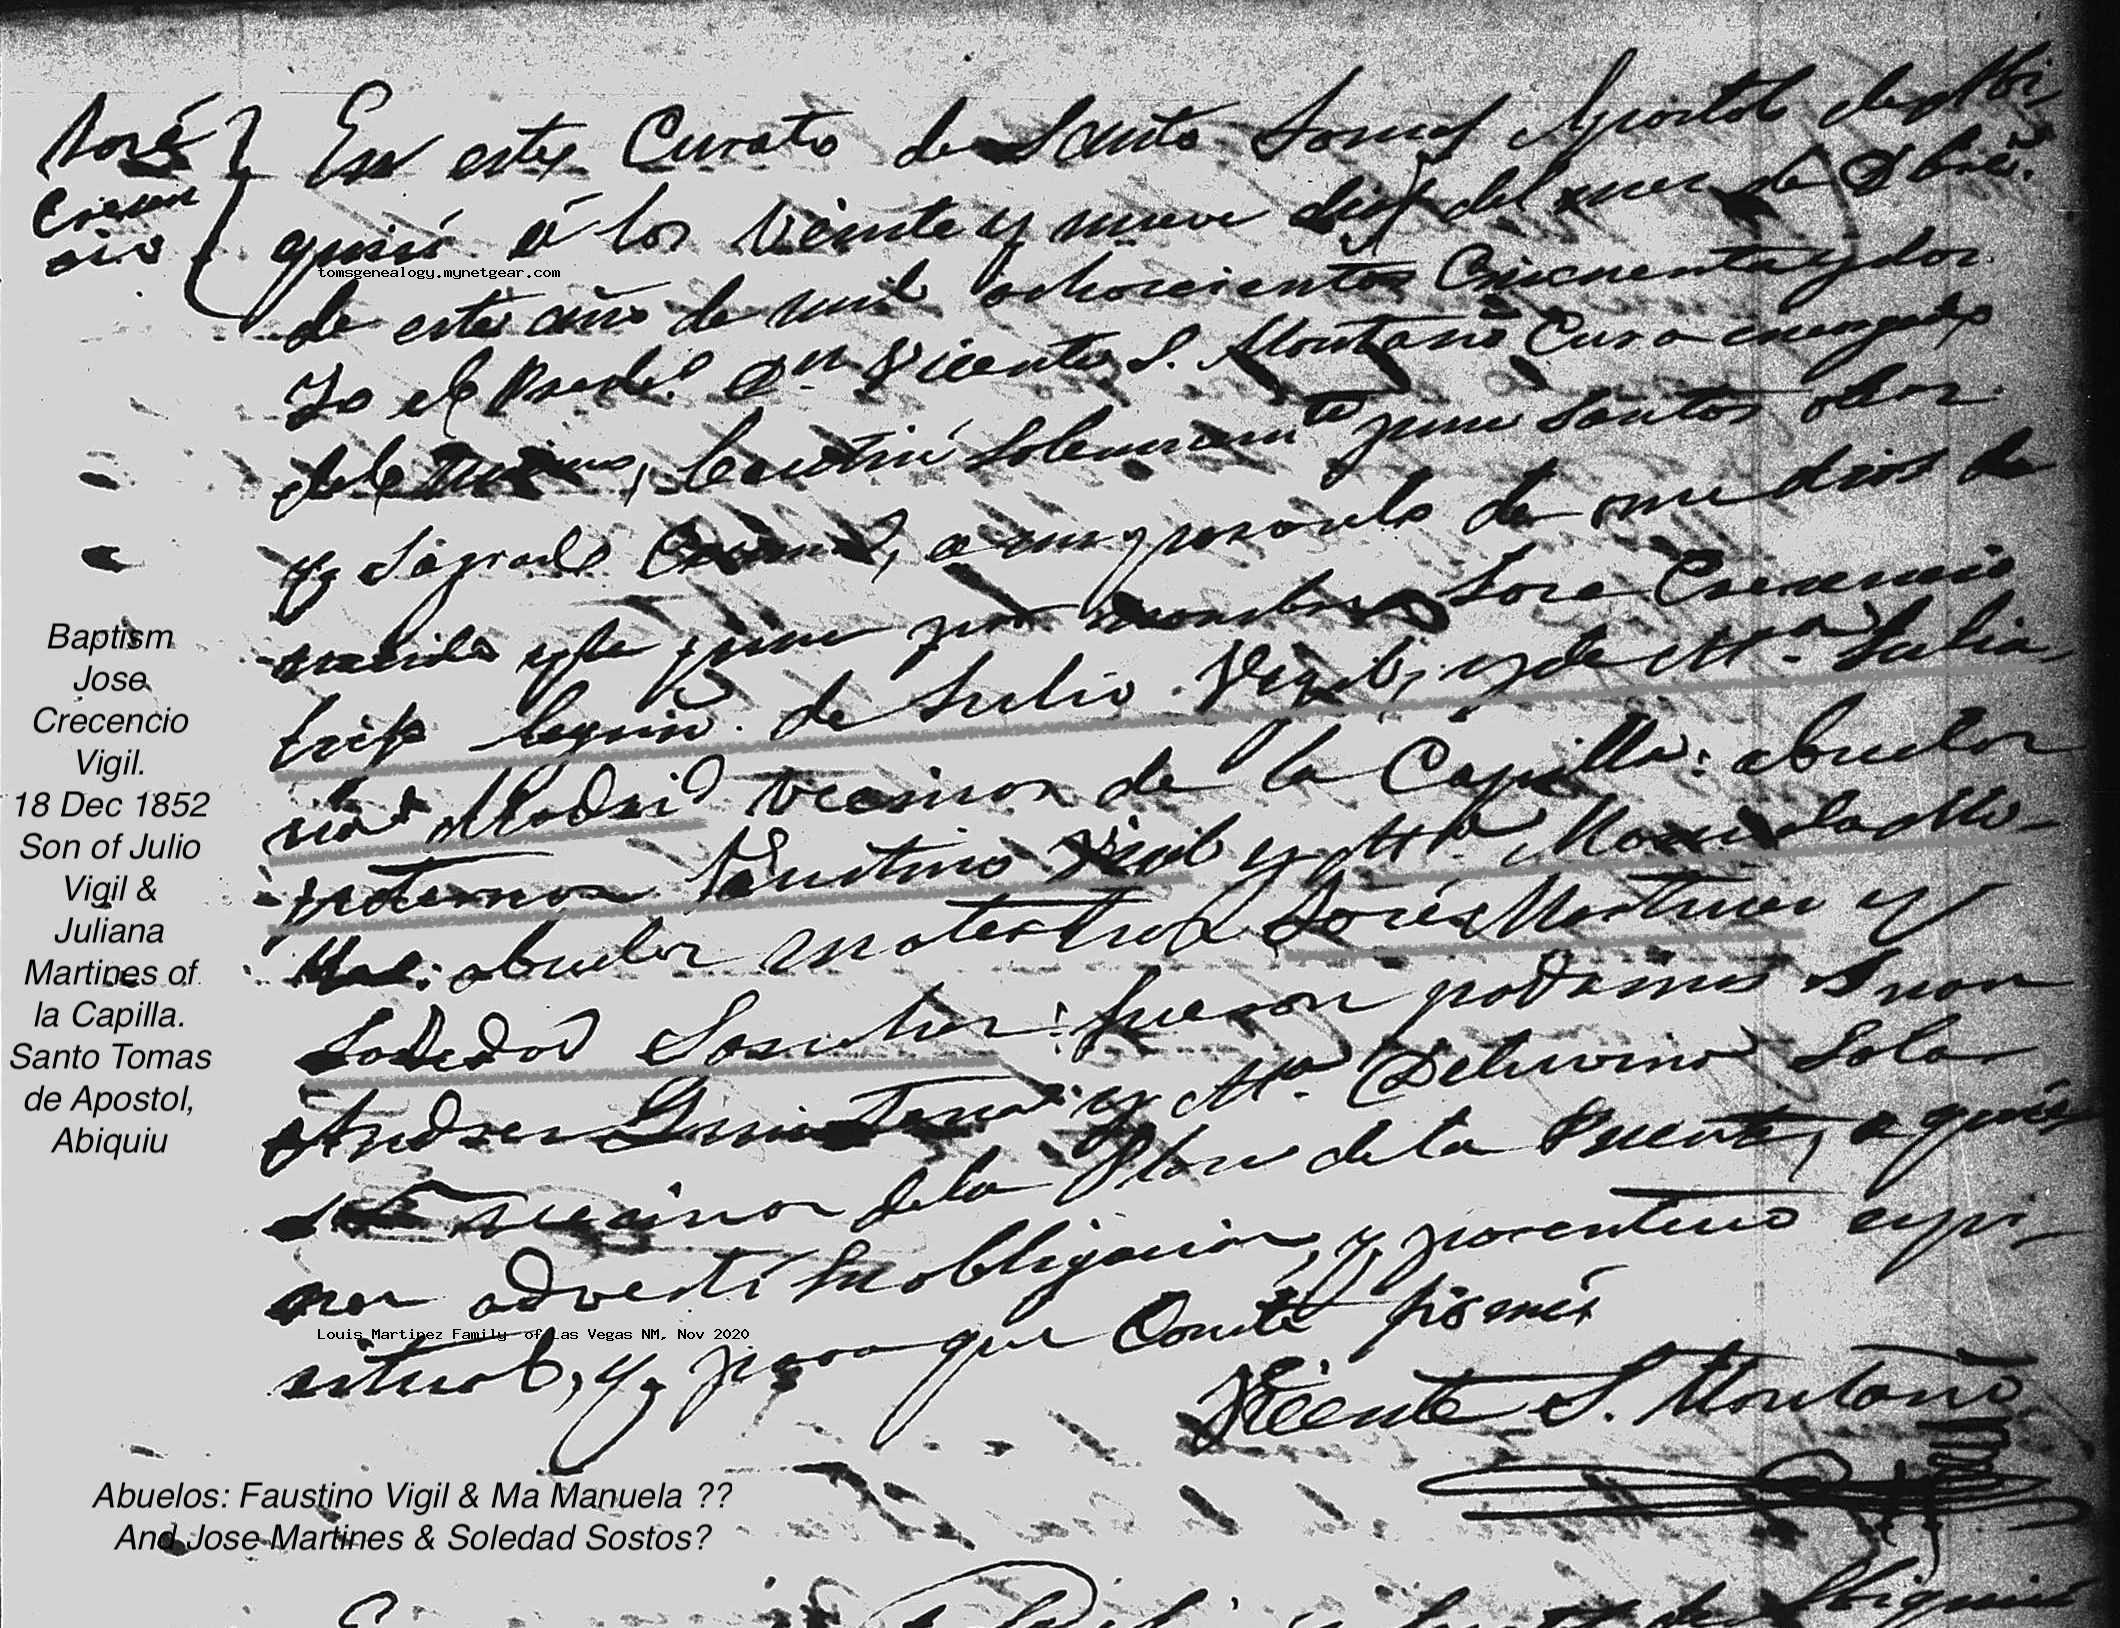 José
Crecen
cio
En este Curato de Santo Tomas Apostol de Abi-
quiú á los Veinte y nueve dias del mes de Dbre.
tomsgenealogy.mynetgear.com
de este año de mil ochocientos Cincuenta y dos.
Yo el Presb.o Dn Vicente S. Montaño Cura encargado
del mismo, bauticé Solemnemente puse Santos oleos
y Sagrado Crisma, a un parvulo de dias de
nacido y le puse por nombre José Crecencio
hijo legmo. de Julio Vigil, y de Ma. Julia-
na Madrid vecinos de la Capilla: abuelos
paternos Faustino Vigil y Ma. Manuela
abuelos maternos José Martines y
Soledad Sanches: fueron padrinos Juan
Andres Quintana y Ma. Deluvina
vecinos de la Plaza de la Puente, a quie-
nes advertí su obligacion, y parentesco espi-
ritual, y para que Conste firmé
Louis Martinez Family of Las Vegas NM, Nov 2020
Vicente S. Montaño
Baptism
Jose
Crecencio
Vigil.
18 Dec 1852
Son of Julio
Vigil &
Juliana
Martines of
la Capilla.
Santo Tomas
de Apostol,
Abiquiu
Abuelos: Faustino Vigil & Ma Manuela ??
And Jose Martines & Soledad Sostos?